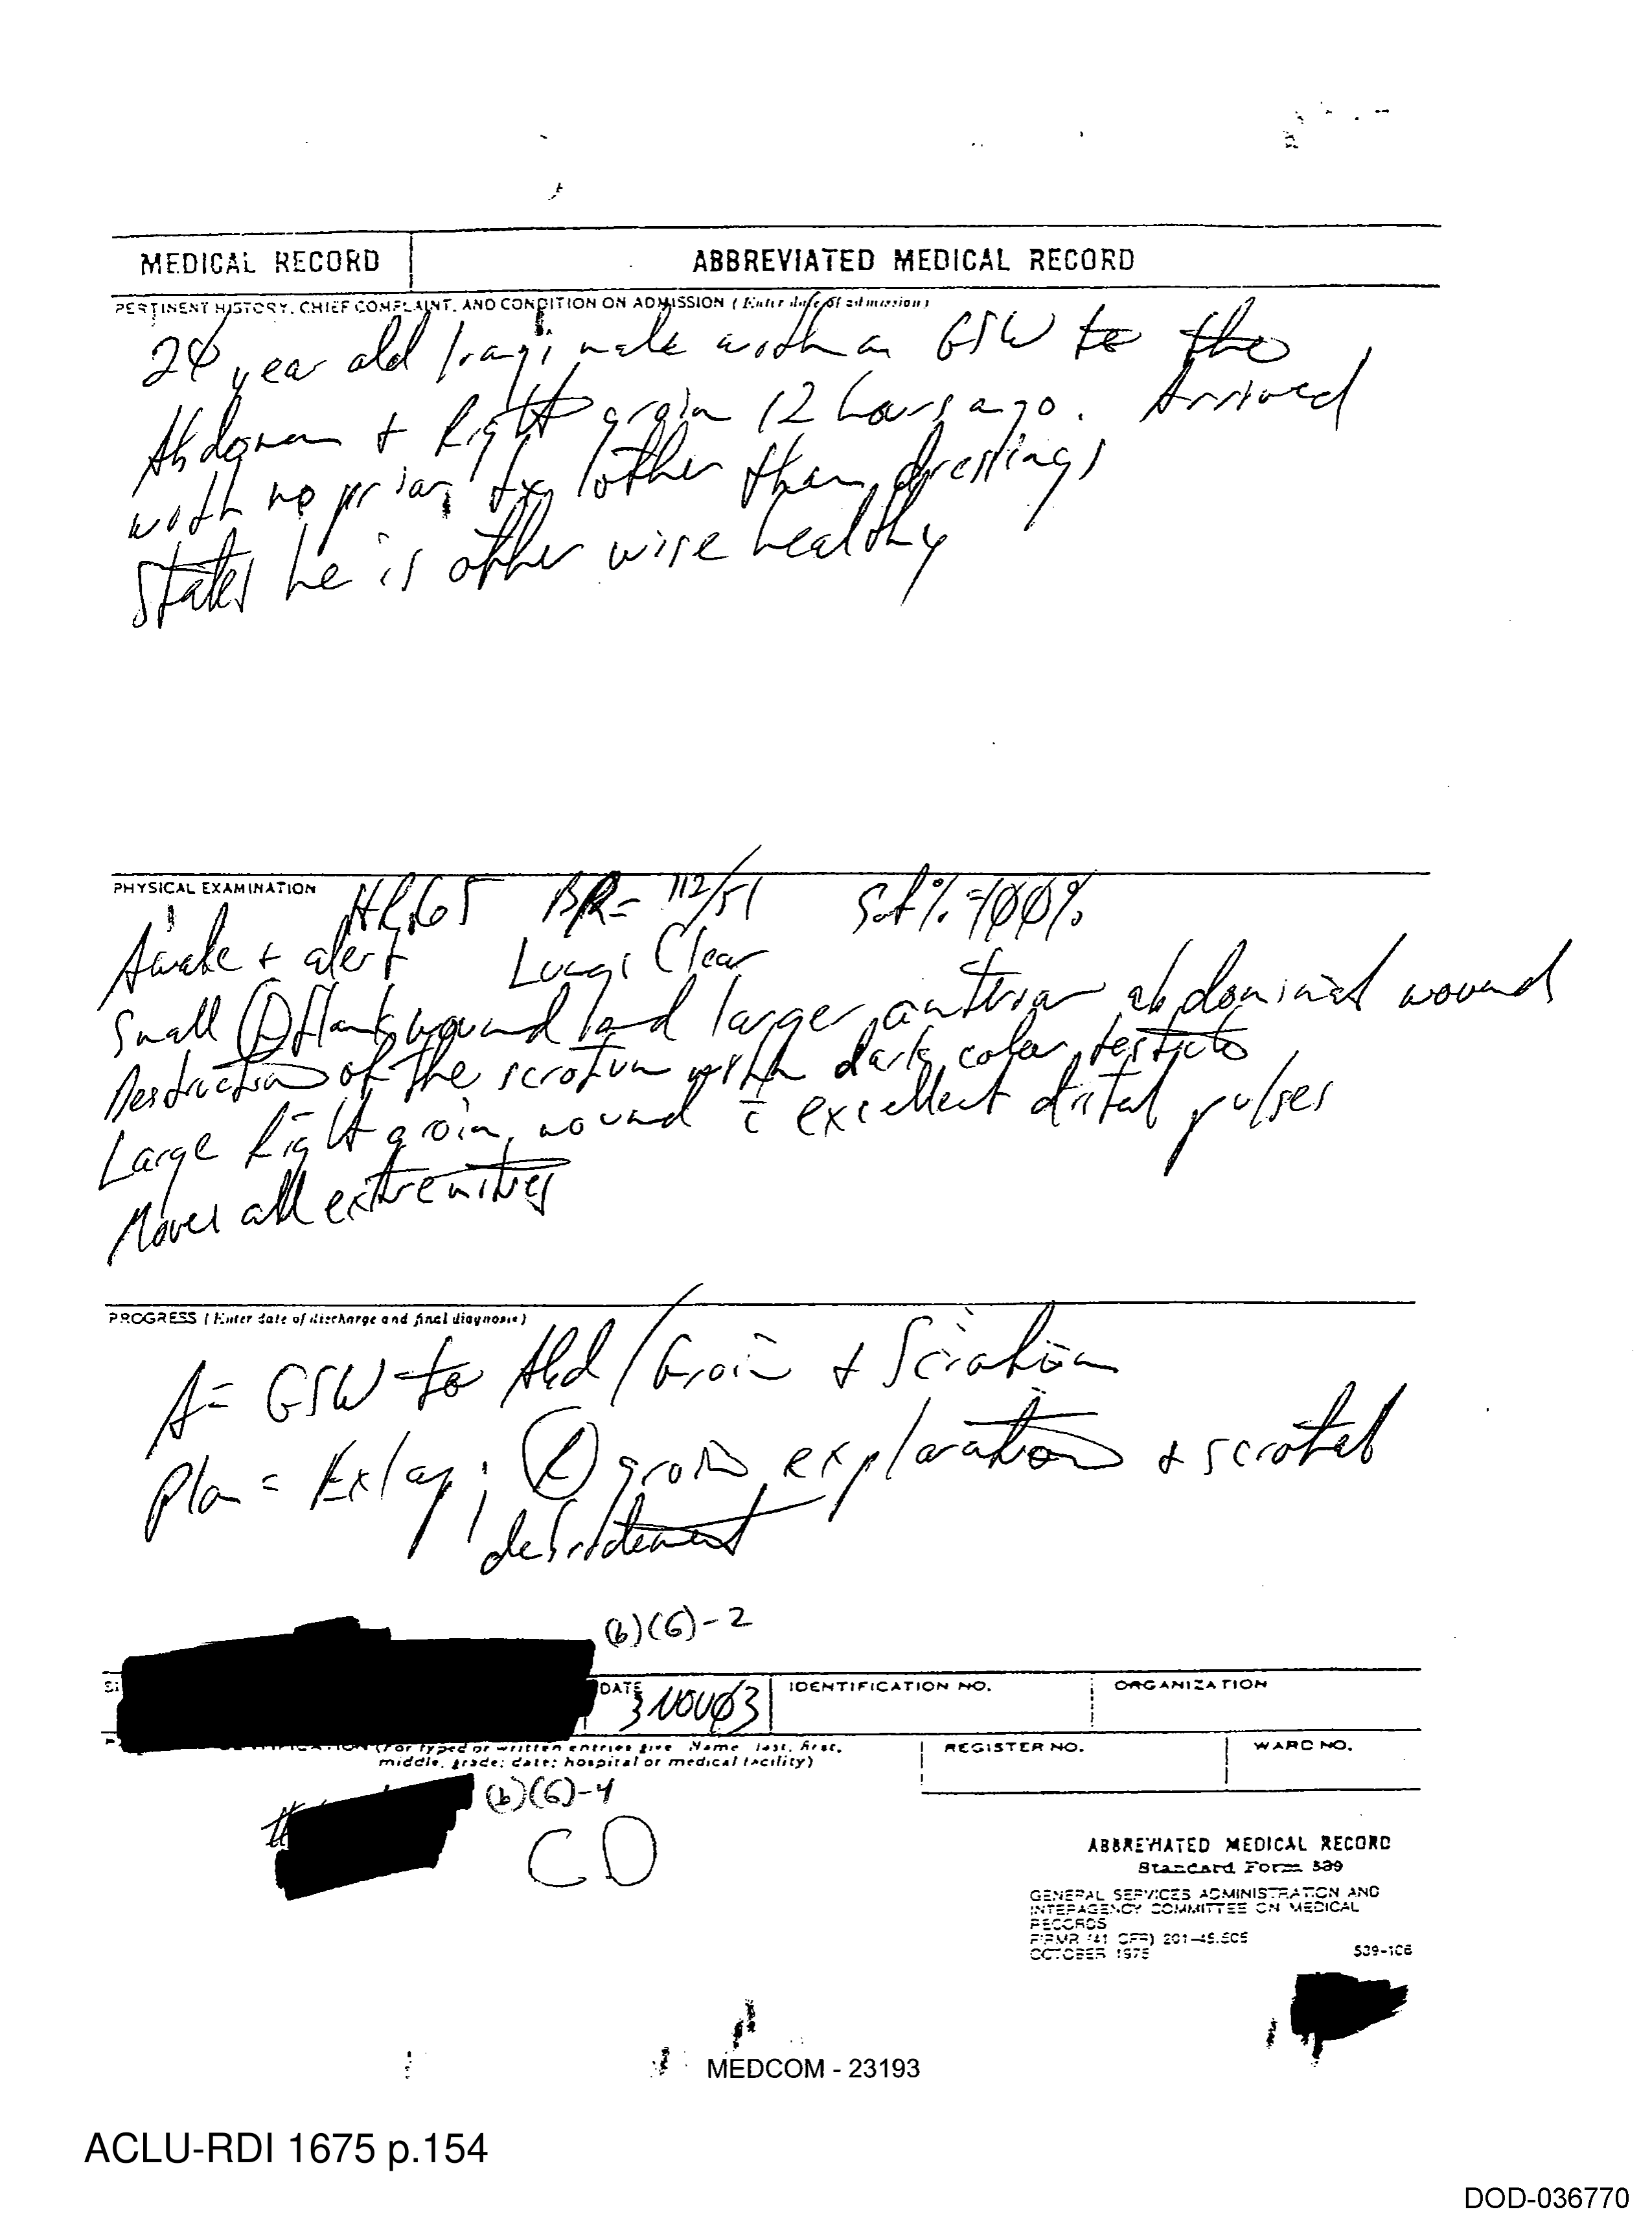 MEDICAL RECORD
ABBREVIATED MEDICAL RECORD
PERTINENT HISTORY, CHIEF COMPLAINT, AND CONDITION ON ADMISSION (Enter date of admission)
24 year old Iraqi male with a GSW to the
Abdomen + Right groin 12 hours ago. Arrived
with no prior tx other than dressings
States he is other wise healthy
PHYSICAL EXAMINATION
HR 65 BP= 112/51 Sat%=100%
Awake + alert Lungs Clear
Small flank wound and larger anterior abdominal wound
Destruction of the scrotum with dark color testicle
Large Right groin wound c̄ excellent distal pulses
Moves all extremities
PROGRESS (Enter date of discharge and final diagnosis)
A= GSW to Abd/Groin +
Plan = Exlap; Ⓡ groin exploration + scrotal
debridement
(b)(6)-2
DATE
3 NOV 03
IDENTIFICATION NO.
ORGANIZATION
(For typed or written entries give Name last, first,
middle, grade; date; hospital or medical facility)
REGISTER NO.
WARD NO.
(b)(6)-4
CD
ABBREVIATED MEDICAL RECORD
Standard Form 539
GENERAL SERVICES ADMINISTRATION AND
INTERAGENCY COMMITTEE ON MEDICAL
RECORDS
FIRMR (41 CFR) 201-45.505
OCTOBER 1975
539-108
MEDCOM - 23193
ACLU-RDI 1675 p.154
DOD-036770